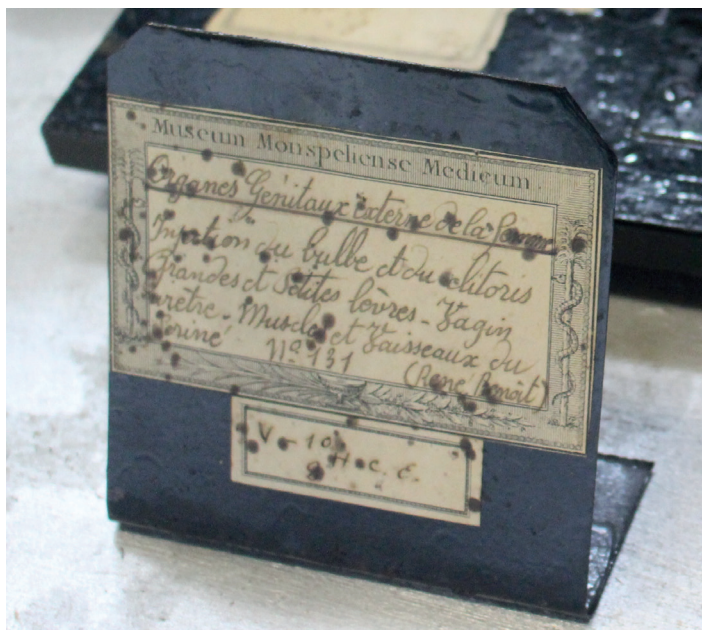 Museum Monspeliense Medicum.
Organes Génitaux Externe de la femme
Injection du bulbe et du clitoris
Grandes et Petites lèvres - Vagin
urètre - Muscles et Vaisseaux du
Périné (René Benoît)
Nº 131
V - 10
H. C. E.